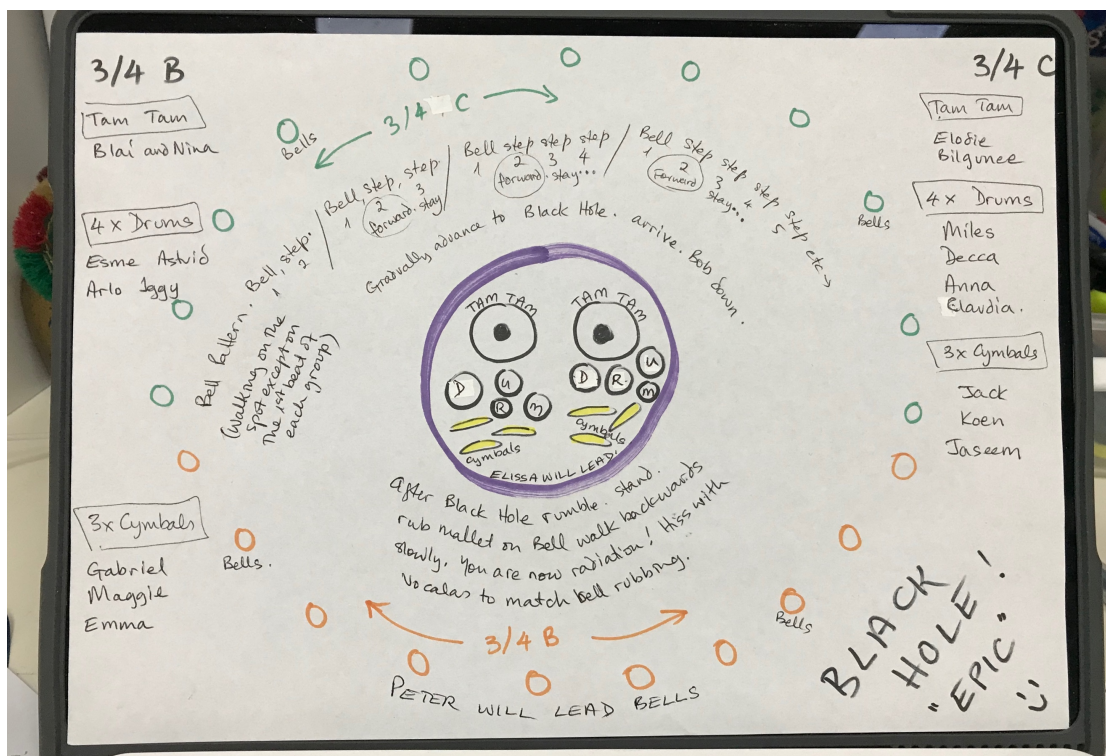 3/4 B
Tam Tam
Blai and Nina
4 x Drums
Esme Astrid
Arlo Iggy
3x Cymbals
Gabriel
Maggie
Emma
3/4 C
Bells
Bell Pattern. Bell, step.
1 2
/ Bell step, step.
1 2 3
forward. stay
/ Bell step step step
1 2 3 4
forward. stay...
/ Bell step step step step etc →
1 2 3 4 5
Forward stay...
(walking on the
spot except on
the 1st beat of
each group)
Gradually advance to Black Hole. arrive. Bob down.
TAM TAM
TAM TAM
D
U
R
M
D
R
U
M
cymbals
cymbals
ELISSA WILL LEAD.
After Black Hole rumble. stand.
rub mallet on Bell walk backwards
slowly, you are now radiation! Hiss with
vocalas to match bell rubbing.
Bells.
3/4 B
Bells
PETER WILL LEAD BELLS
3/4 C
Tam Tam
Elodie
Bilgunee
4 x Drums
Miles
Decca
Anna
Claudia.
Bells
3x Cymbals
Jack
Koen
Jaseem
BLACK
HOLE!
"EPIC"